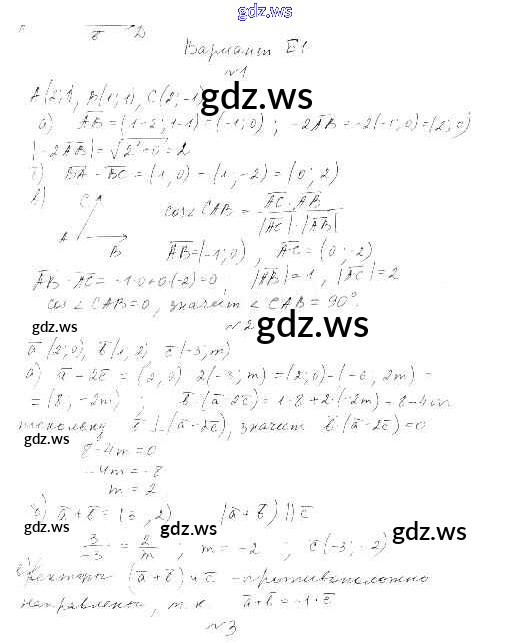 gdz.ws
в D
Вариант Б1
№1
A(2;1), B(1;1), C(2;-1)
gdz.ws
а) AB = (1-2;1-1) = (-1;0) ; -2AB = -2(-1;0) = (2;0)
|-2AB| = √(2²+0) = 2
б) BA - BC = (1;0) - (1;-2) = (0;2)
в)
C
A
B
cos∠CAB = AC·AB / |AC|·|AB|
gdz.ws
AB = (-1;0), AC = (0;-2)
AB·AC = -1·0+0(-2) = 0, |AB| = 1, |AC| = 2
cos∠CAB = 0, значит ∠CAB = 90°.
gdz.ws
№2
gdz.ws
a (2;0), b (1;2), c (-3;m)
а) a - 2c = (2;0) - 2(-3;m) = (2;0) - (-6;2m) =
= (8;-2m) ; b·(a-2c) = 1·8+2·(-2m) = 8-4m
поскольку b⊥(a-2c), значит b(a-2c) = 0
gdz.ws
8-4m = 0
-4m = -8
gdz.ws
m = 2
б) a+b = (3;2) (a+b) || c
gdz.ws
gdz.ws
gdz.ws
3/-3 = 2/m ; m = -2 ; c(-3;-2)
в) Векторы (a+b) и c - противоположно
направлены, т.к. a+b = -1·c
gdz.ws
№3